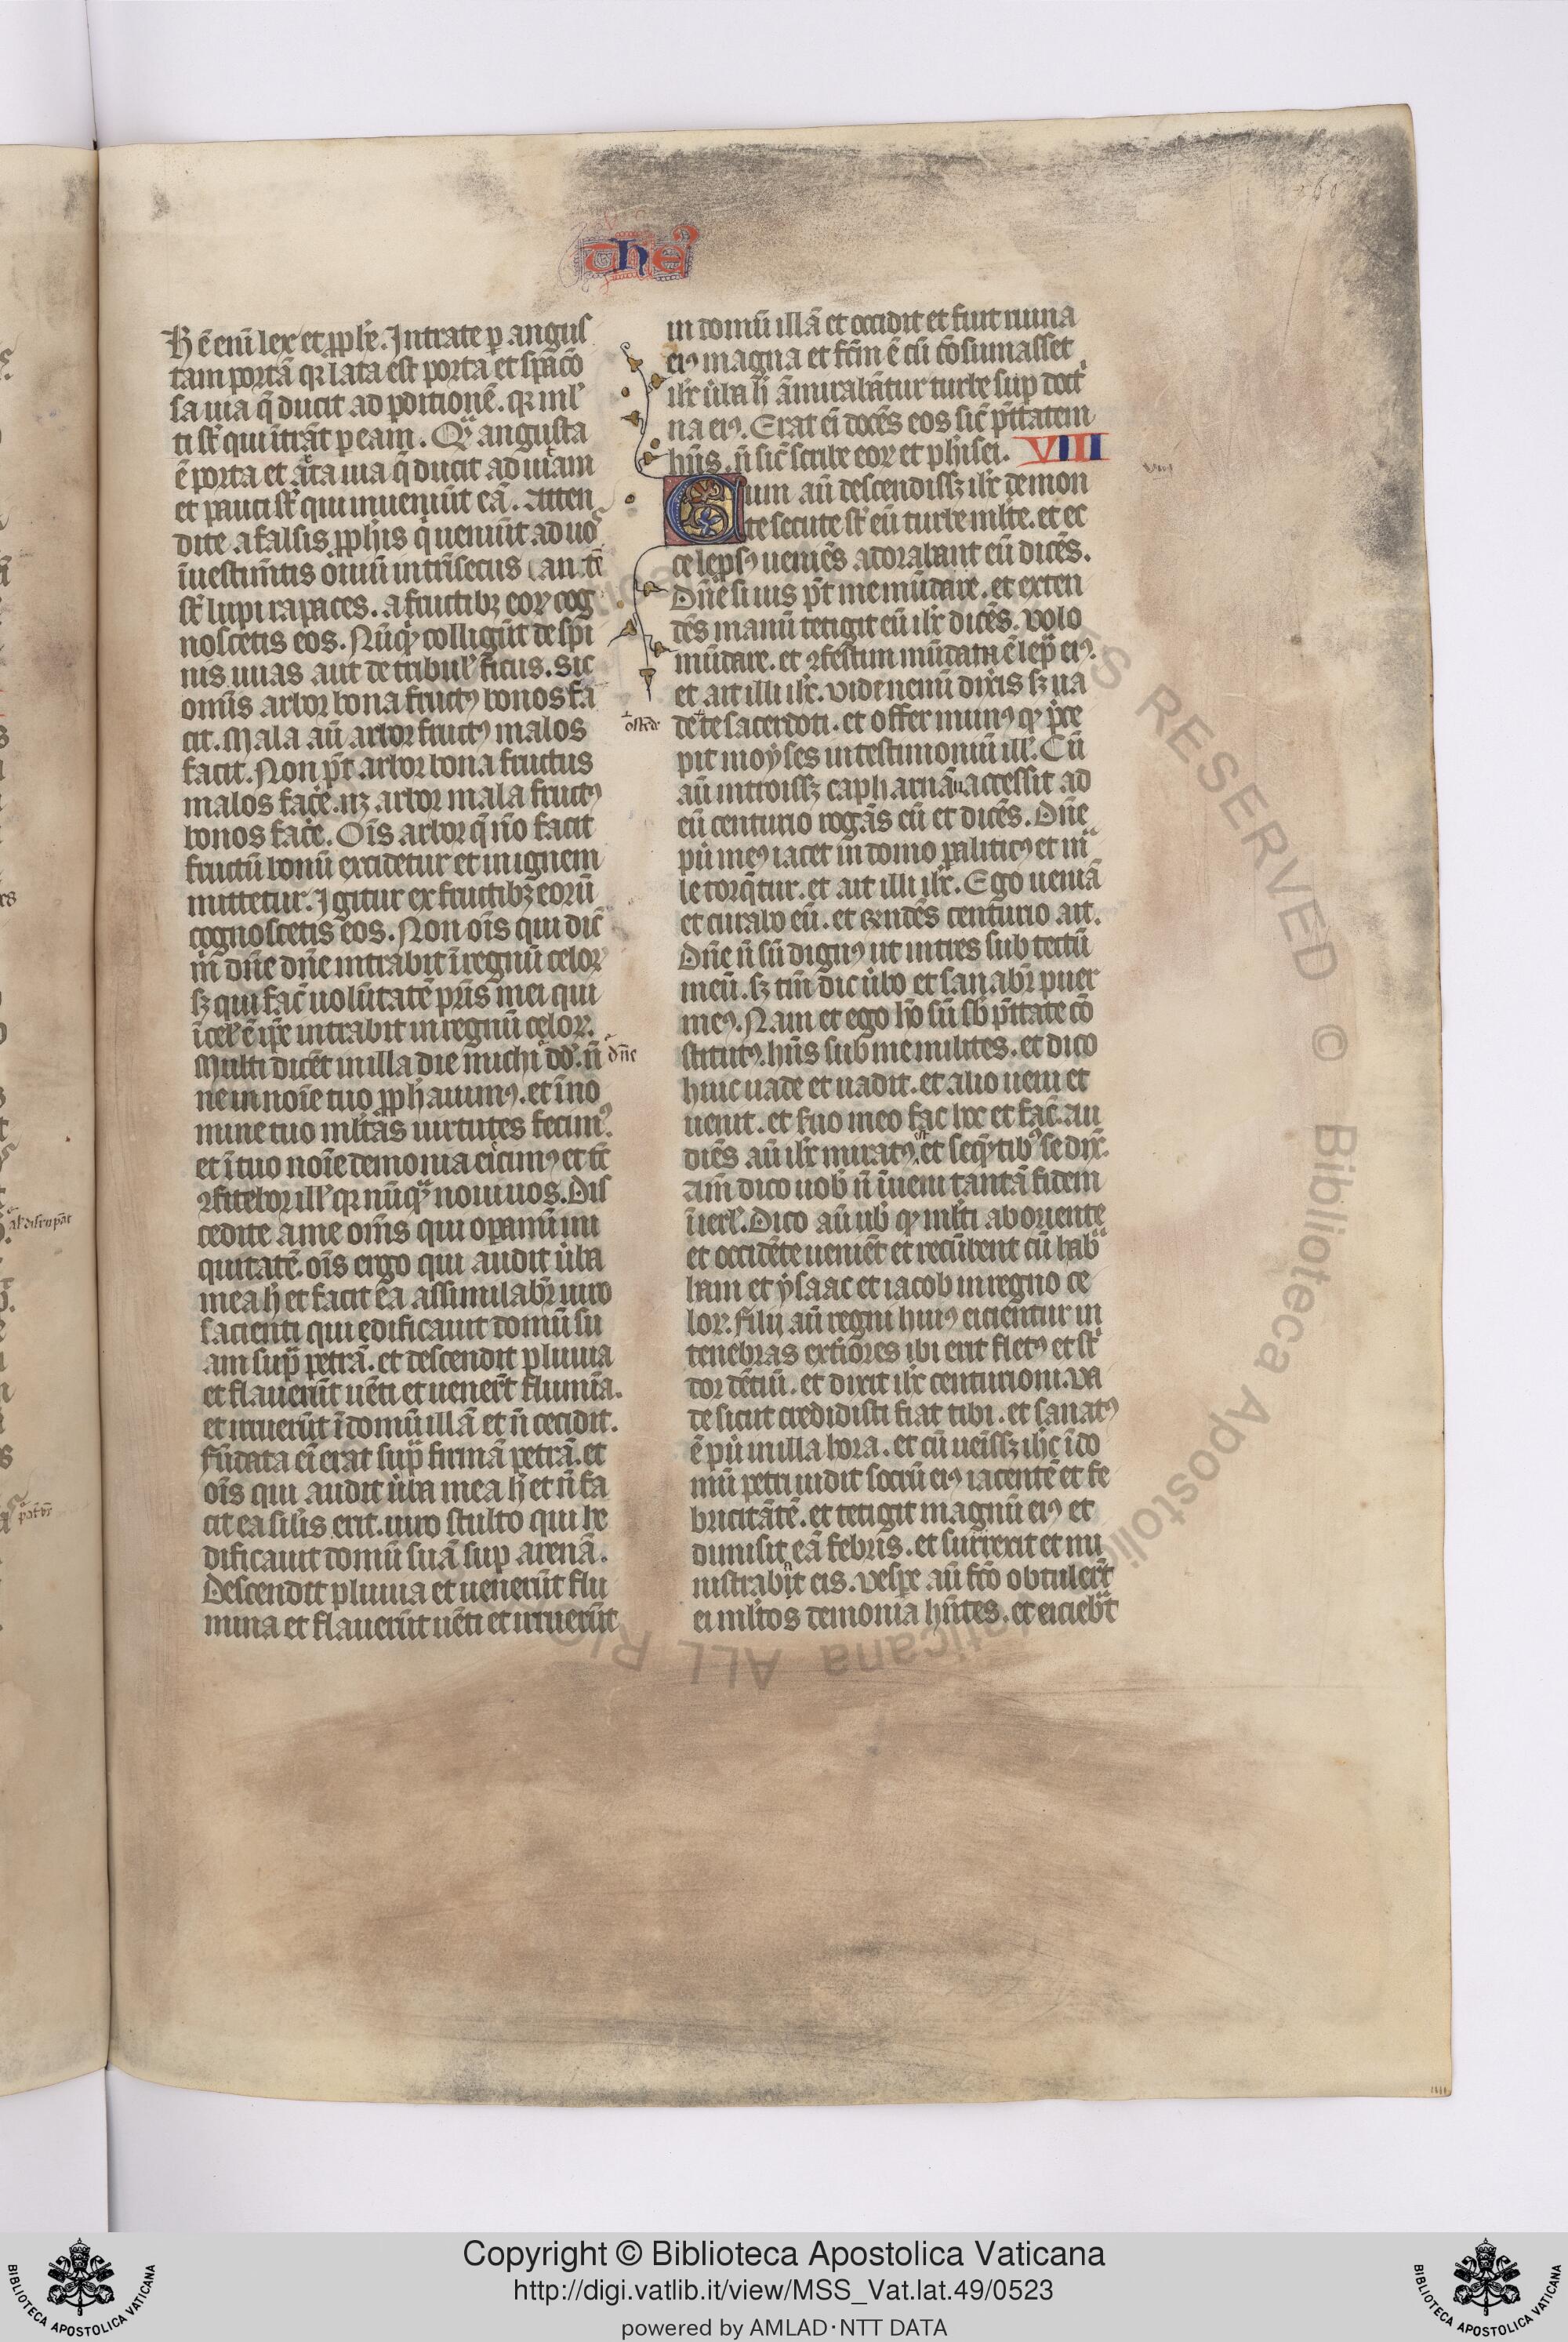 the᷒
h̅ ē eni̅ lex et ꝓphe̅. Intrate p angus
tam portā qꝛ lata est porta et spācō
sa uia q̄ ducit ad pditionē. qꝛ ml
ti st̄ qui ītrāt p eam. Qͣ angusta
ē porta et arta uia q̄ ducit ad uitam
et pauci st̄ qui inueniūt eā. Atten
dite a falsis ꝓphis q̇ ueniūt ad uos
ī uestimtis ouiū intrīsecus autē
st̄ lupi rapaces. a fructibꝫ eoꝝ cog
noscetis eos. Nūqͥ colligūt de spi
nis uuas aut de tribul ficus. Sic
omīs arbor bona fructꝰ bonos fa
cit. Mala aū arbor fructꝰ malos
facit. Non pt̄ arbor bona fructus
malos facē. nꝫ arbor mala fructꝰ
bonos facē. Oīs arbor q̄ nō facit
fructū bonū excidetur et in ignem
mittetur. Igitur ex fructibꝫ eorū
cognoscetis eos. Non oīs qui dic̄
m̄ dn̄e dn̄e intrabit ī regnū celoꝝ
sꝫ qui fac̄ uolūtatē pr̄is mei qui
ī cel ē ip̄e intrabit in regnū celoꝝ.
Multi dicēt in illa die michi dn̄e. n̄
dn̄e
ne in noīe tuo ꝓphauimꝰ. et ī no
mine tuo ml̄tas uirtutes fecimꝰ.
et ī tuo noīe demonia eicimꝰ et tc̄
ꝯfitebor ill qꝛ nūqͣ noui uos. Dis
cedite a me om̄s qui opamī ini
quitatē. oīs ergo qui audit ūba
mea h̅ et facit ea assimilabr̄ uiro
sacienti qui edificauit domū su
am supͣ petrā. et descendit pluuia
et flauerūt uēti et uenert̄ flumīa.
et irruerūt ī domū illā et n̄ cecidit.
fūdata ei̅ erat supͣ firmā petrā. et
oīs qui audit ūba mea h̅ et n̄ fa
cit ea silis erit. uiro stulto qui he
dificauit domū suā sup arenā.
Descendit pluuia et uenerūt flu
mina et flauerūt uēti et irruerūt
in domū illā et cecidit et fuit ruina
eiꝰ magna et fc̄m ē cū cōsumasset
ih̅c ūba h̅ amirabātur turbe sup doct
na eiꝰ. Erat ei̅ docēs eos sic̄ p̄ttatem
hn̄s. n̄ sic̄ scribe eoꝝ et phisei. VIII
Cum aū descendissꝫ ih̅c de mon
te secute st̄ eū turbe ml̄te. et ec
ce lepsꝰ ueniēs adorabant eū dicēs.
Dn̄e si uis pt̄ me mūdare. et exten
dēs manū tetigit eū ih̅c dicēs. volo
mūdare. et ꝯfestim mūdata ē lepͣ eiꝰ.
et ait illi ih̅c. vide nemi̅ dixis sꝫ ua
ostēde
de te sacerdoti. et offer munꝰ qͩ p̄ce
pit moẏses in testimoniū ill. Cū
aū introissꝫ capharnaū accessit ad
eū centurio rogās eū et dicēs. Dn̄e
pu̇ meꝰ iacet in domo paliticꝰ et mͣ
le torq̄tur. et ait illi ih̅c. Ego ueniā
et curabo eū. et rn̄dēs centurio ait.
Dn̄e n̄ sū dignꝰ ut intres sub tectū
meū. sꝫ tm̄ dic ūbo et sanabr̄ puer
meꝰ. Nam et ego hō sū sb̄ p̄ttate cō
stitutꝰ. hn̄s sub me milites. et dico
huic uade et uadit. et alio ueni et
uenit. et ẜuo meo fac hoc et fac̄. au
diēs aū ih̅c miratꝰ ē et seqn̄tibꝰ se dix̄.
am̄ dico uob̄ n̄ īueni tantā fidem
ī isrl. Dico aū ub̄ qͩ ml̄ti ab oriente
et occidēte ueniēt et recūbent cū hab
ham et ẏsaac et iacob in regno ce
loꝝ. filij aū regni huiꝰ eicientur in
tenebras extiōres ibi erit fletꝰ et st
dor dētiū. et dixit ih̅c centurioni. va
de sicut credidisti fiat tibi. et sanatꝰ
ē pu̇ in illa hora. et cū ueīssꝫ ih̅c ī do
mū petri uidit socrū eiꝰ iacentē et fe
bricitātē. et tetigit magnū eiꝰ et
dimisit eā febris. et surrexit et mi
nistrabat eis. vespe aū fc̄o obtulert̄
ei ml̄tos demonia hn̄tes. et eiciebt̄
ALL RIGHTS RESERVED © Biblioteca Apostolica Vaticana
Copyright © Biblioteca Apostolica Vaticana
http://digi.vatlib.it/view/MSS_Vat.lat.49/0523
powered by AMLAD·NTT DATA
BIBLIOTECA APOSTOLICA VATICANA
BIBLIOTECA APOSTOLICA VATICANA